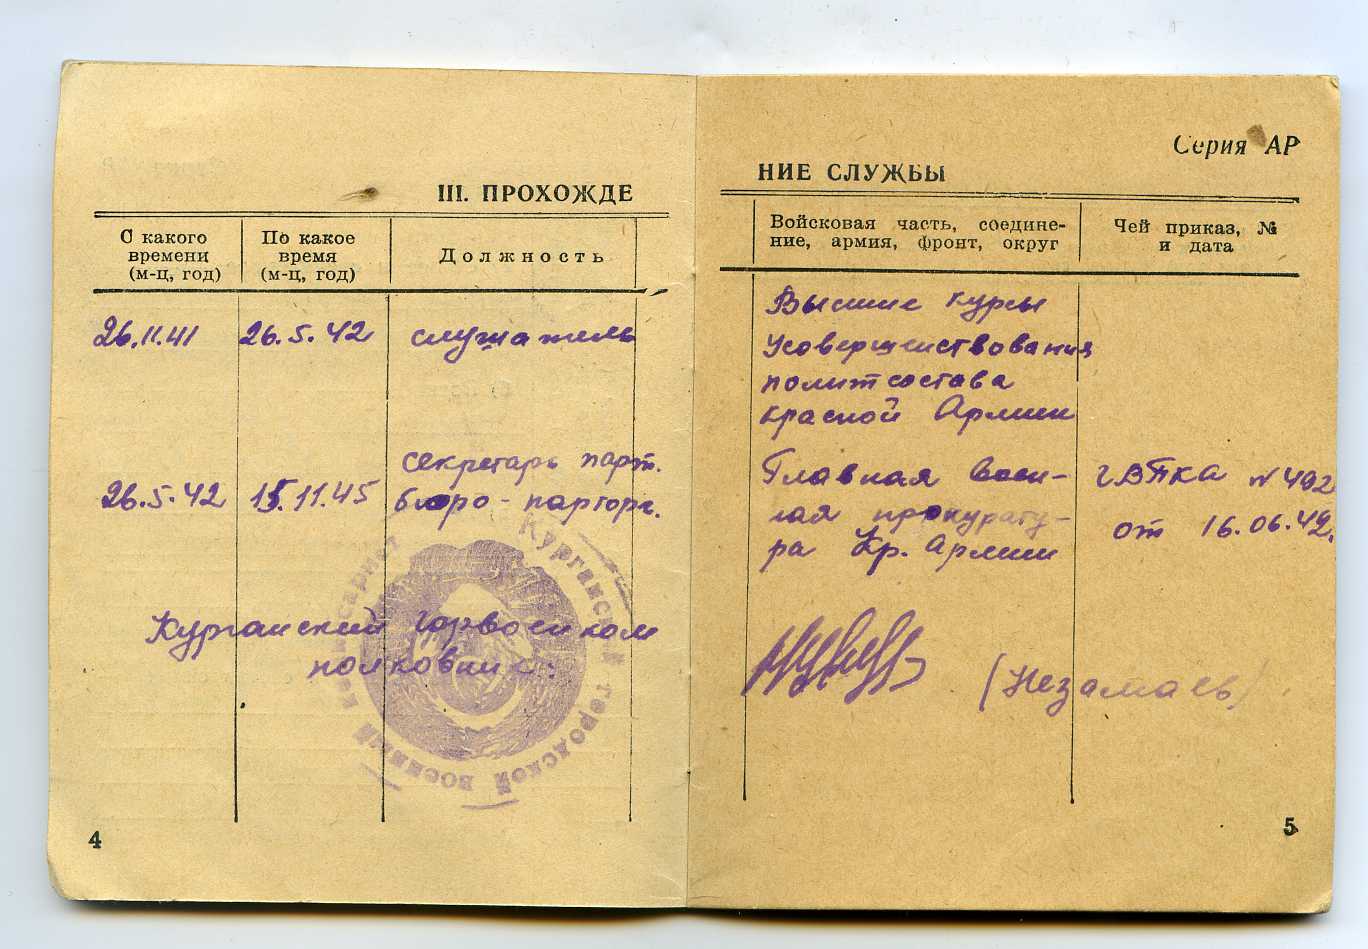 III. ПРОХОЖДЕ
С какого времени (м-ц, год)
По какое время (м-ц, год)
Должность
26.11.41
26.5.42
слушатель
26.5.42
15.11.45
секретарь парт.
бюро - парторг.
Курганский горвоенком
полковник:
Курганский городской военный комиссариат
4
Серия АР
НИЕ СЛУЖБЫ
Войсковая часть, соедине-
ние, армия, фронт, округ
Чей приказ, №
и дата
Высшие курсы
Усовершенствования
политсостава
красной Армии
Главная Воен-
ная прокурату-
ра Кр. Армии
ГВПКА N 492
от 16.06.42.
(Незамаев)
5